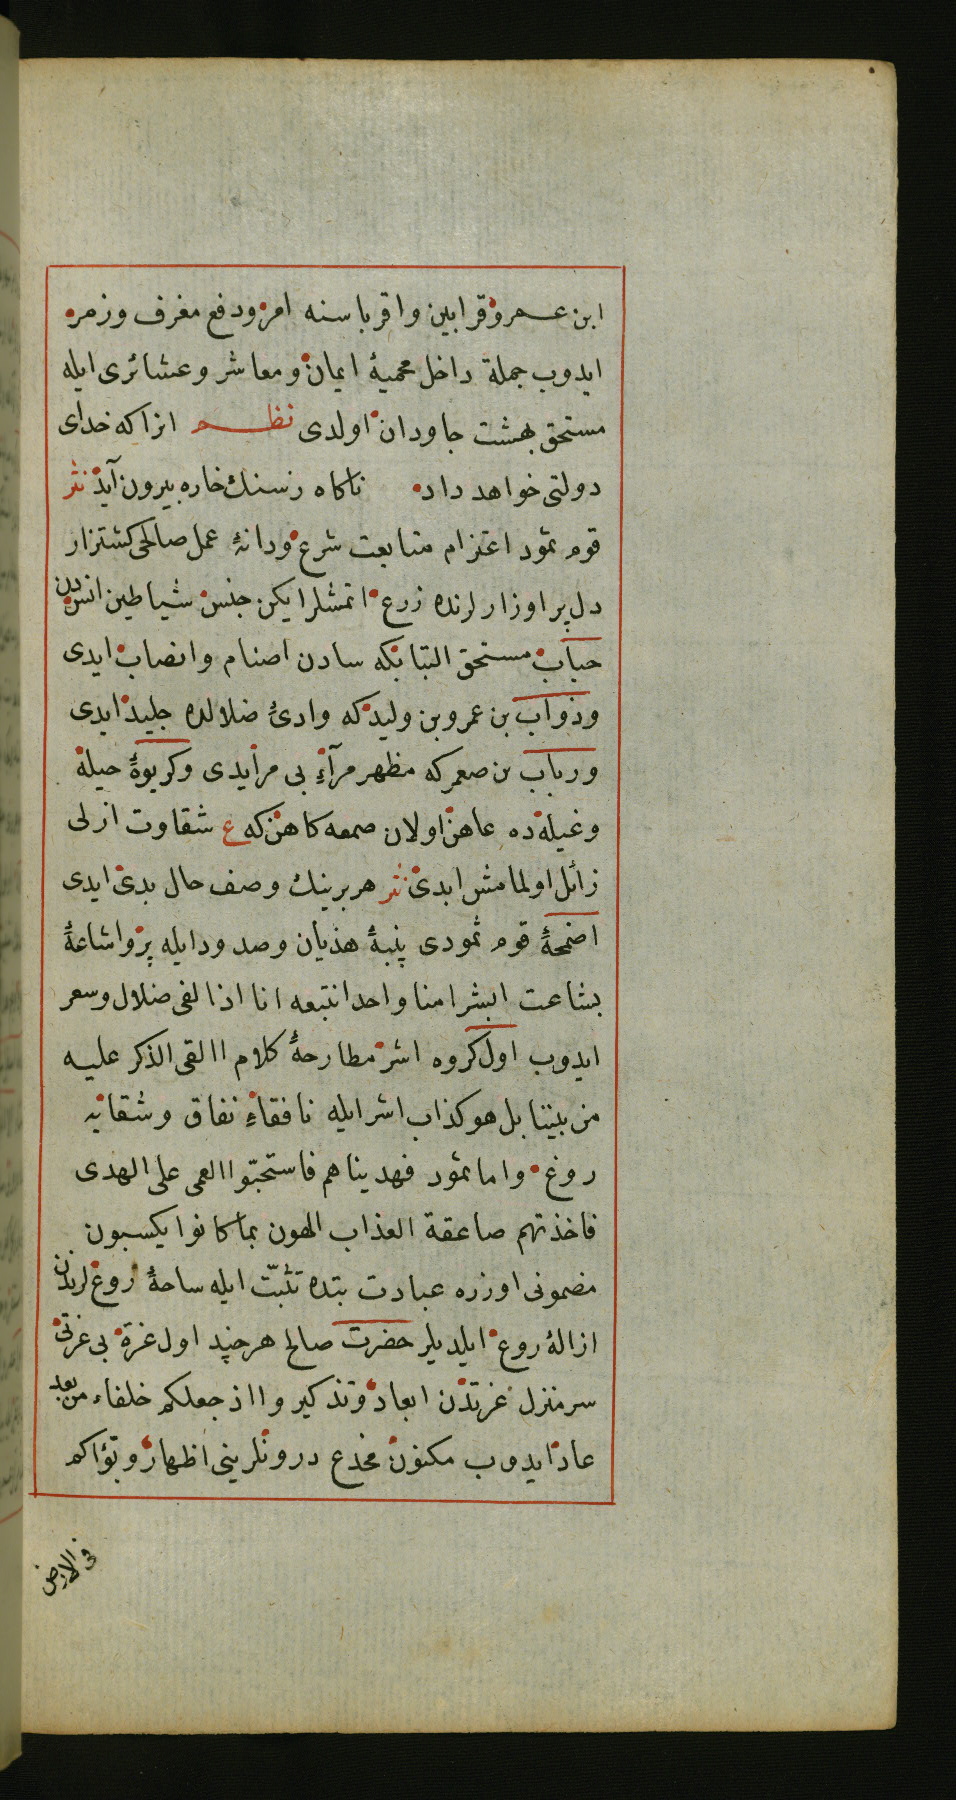 ابن عمرو قرابين واقرباسنه امر ودفع مغرف وزمره
ايدوب جملة داخل محميۀ ايمان ومعاشر وعشائرى ايله
مستحق بهشت جاودان اولدى نظم انرا كه خداى
دولتى خواهد داد ناكاه زسنك خاره بيرون آيد نثر
قوم ثمود اعتزام متابعت شرع ودانۀ عمل صالحى كشتزار
دل پر اوزارلرنده زرع اتمشلرايكن جنس شياطين انسدن
حباب مستحق التباب كه سادن اصنام وانصاب ايدى
وذواب بن عمرو بن وليد كه وادئ ضلالده جليد ايدى
ورباب بن صعمر كه مظهر مرآءِ بى مرا يدى وكريوۀ حيله
وغيله ده عاهن اولان صمعه كاهن كه ع شقاوت ازلى
زائل اولمامش ابدى نثر هر برينك وصف حال بدى ايدى
اضمحۀ قوم ثمودى پنبۀ هذيان وصد ودايله پر واشاعۀ
بشاعت ابشرا منا واحدا نتبعه انا اذا لفى ضلال وسعر
ايدوب اول كروه اشر مطارحۀ كلام االقى الذكر عليه
من بيننا بل هو كذاب اشر ايله نافقاءِ نفاق وشقاته
روغ واما ثمود فهديناهم فاستحبّوا العمى على الهدى
فاخذتهم صاعقة العذاب الهون بما كانوا يكسبون
مضمونى اوزره عبادت بتده تثبّت ايله ساحۀ روغلرندن
ازالۀ روع ايلديلر حضرت صالح هر چند اول غرۀ بى غرتى
سرمنزل غرتدن ابعاد وتذكير واذ جعلكم خلفاء من بعد
عاد ايدوب مكنون مخدع درونلرينى اظهار وبوّاكم
فى الارض